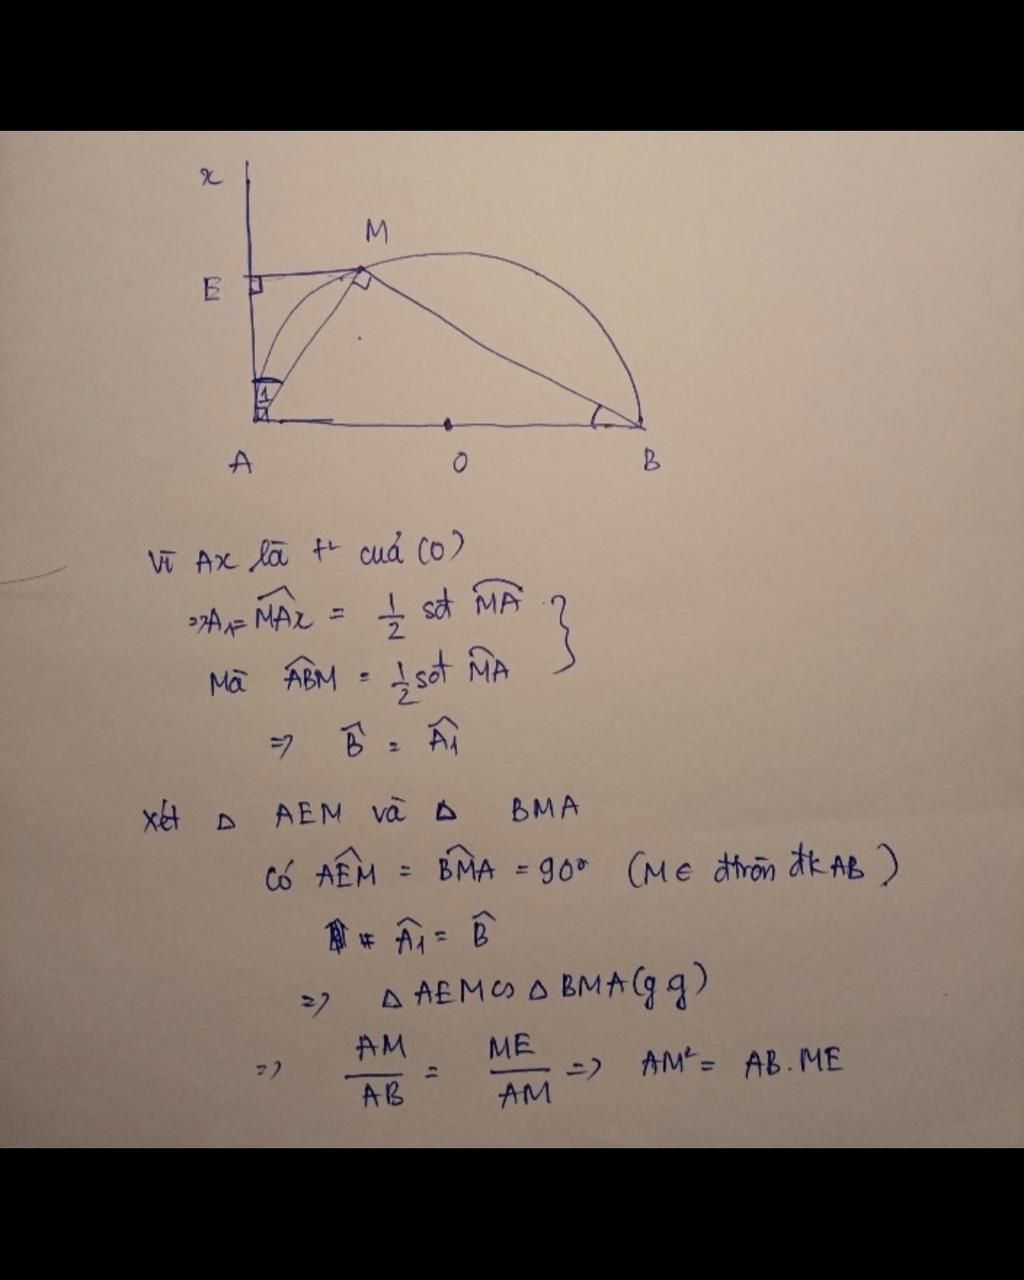 x
M
E
1
A
O
B
Vì Ax là t² cuả (O)
=> A₁ = \widehat{MAx} = \frac{1}{2} sđ \overset{\frown}{MA}
Mà \widehat{ABM} = \frac{1}{2} sđ \overset{\frown}{MA}
=> \widehat{B} = \widehat{A₁}
xét Δ AEM và Δ BMA
Có \widehat{AEM} = \widehat{BMA} = 90° (M ∈ đtròn đk AB)
\widehat{A₁} = \widehat{B}
=> Δ AEM ∽ Δ BMA (g g)
=> \frac{AM}{AB} = \frac{ME}{AM} => AM² = AB.ME